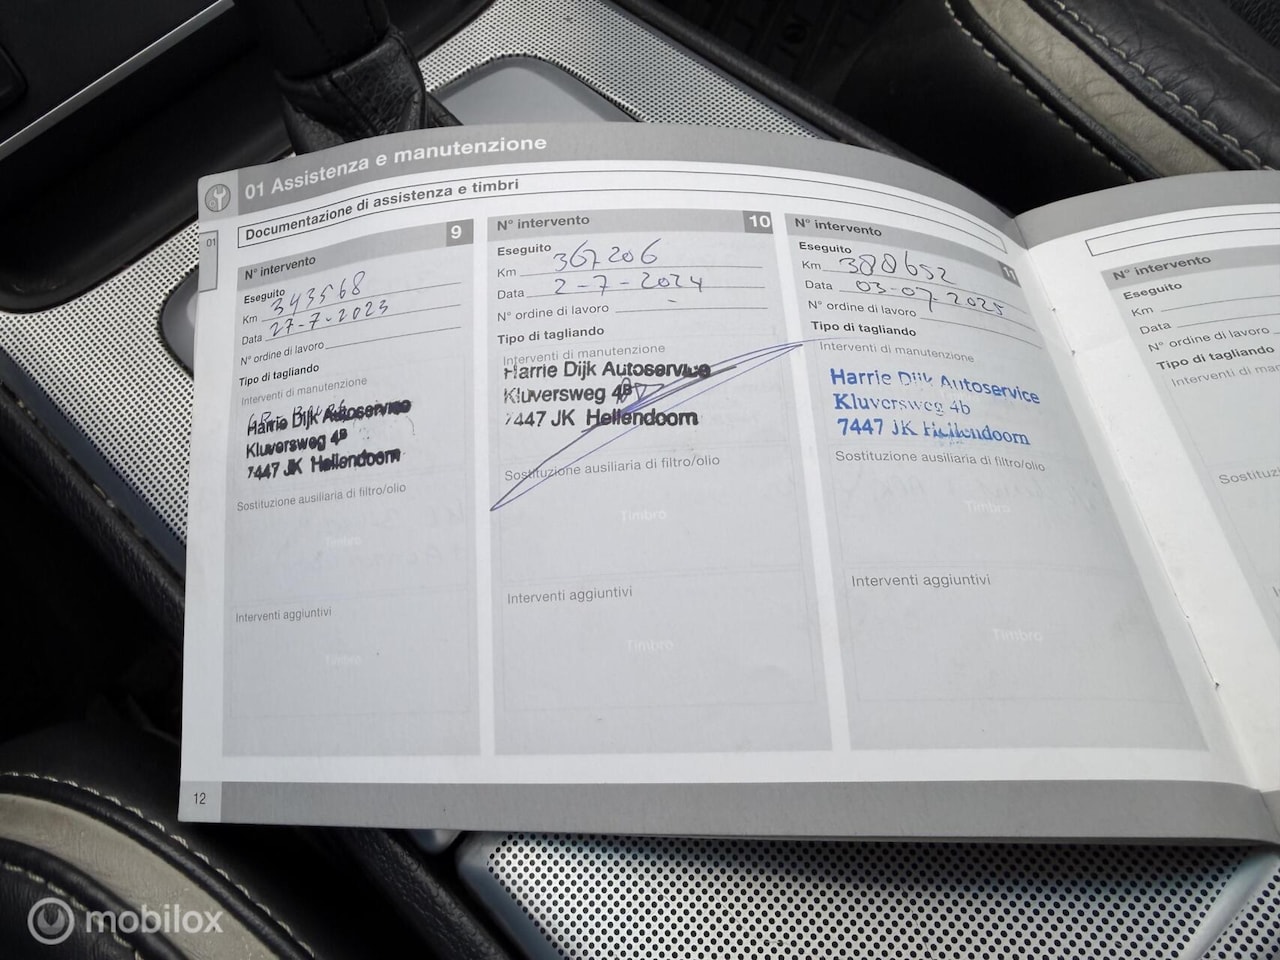 01 Assistenza e manutenzione
Documentazione di assistenza e timbri
01
N° intervento 9
Eseguito
Km 343568
Data 27-7-2023
N° ordine di lavoro
Tipo di tagliando
Interventi di manutenzione
Harrie Dijk Autoservice
Kluversweg 4B
7447 JK Hellendoorn
Sostituzione ausiliaria di filtro/olio
Timbro
Interventi aggiuntivi
Timbro
N° intervento 10
Eseguito
Km 367206
Data 2-7-2024
N° ordine di lavoro -
Tipo di tagliando
Interventi di manutenzione
Harrie Dijk Autoservice
Kluversweg 4B
7447 JK Hellendoorn
Sostituzione ausiliaria di filtro/olio
Timbro
Interventi aggiuntivi
Timbro
N° intervento 11
Eseguito
Km 388652
Data 03-07-2025
N° ordine di lavoro
Tipo di tagliando
Interventi di manutenzione
Harrie Dijk Autoservice
Kluversweg 4b
7447 JK Hellendoorn
Sostituzione ausiliaria di filtro/olio
Timbro
Interventi aggiuntivi
Timbro
12
N° intervento
Eseguito
Km
Data
N° ordine di lavoro
Tipo di tagliando
Interventi di
mobilox